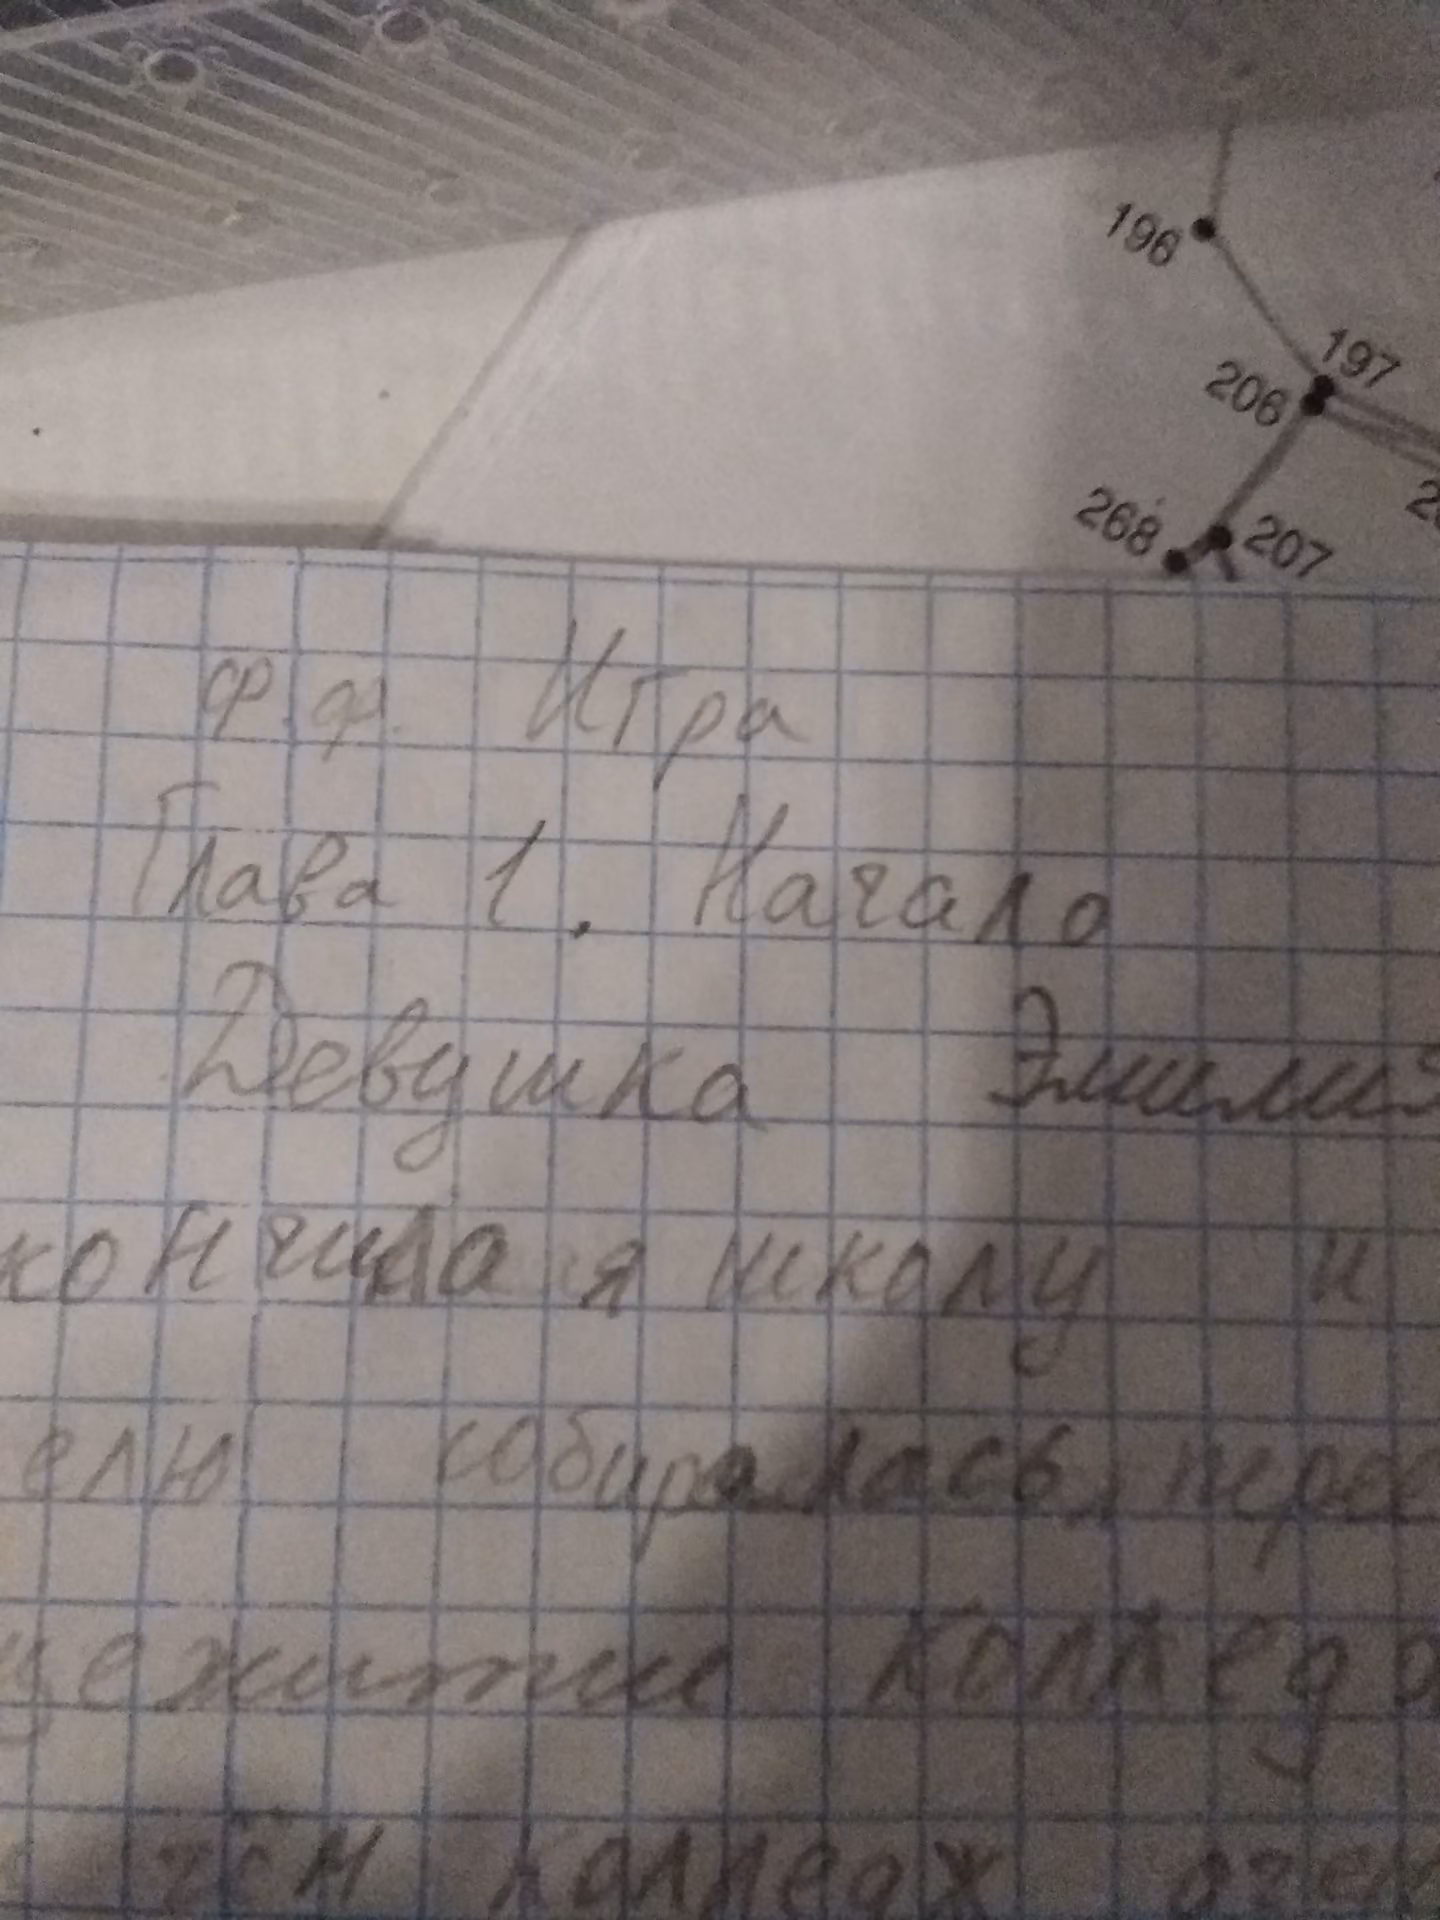 196
197
206
268
207
ф.ф. Игра
Глава 1. Начало
Девушка Эмилия
кончила я школу и
елю собиралась перее
щежитии колледж
колледж очен